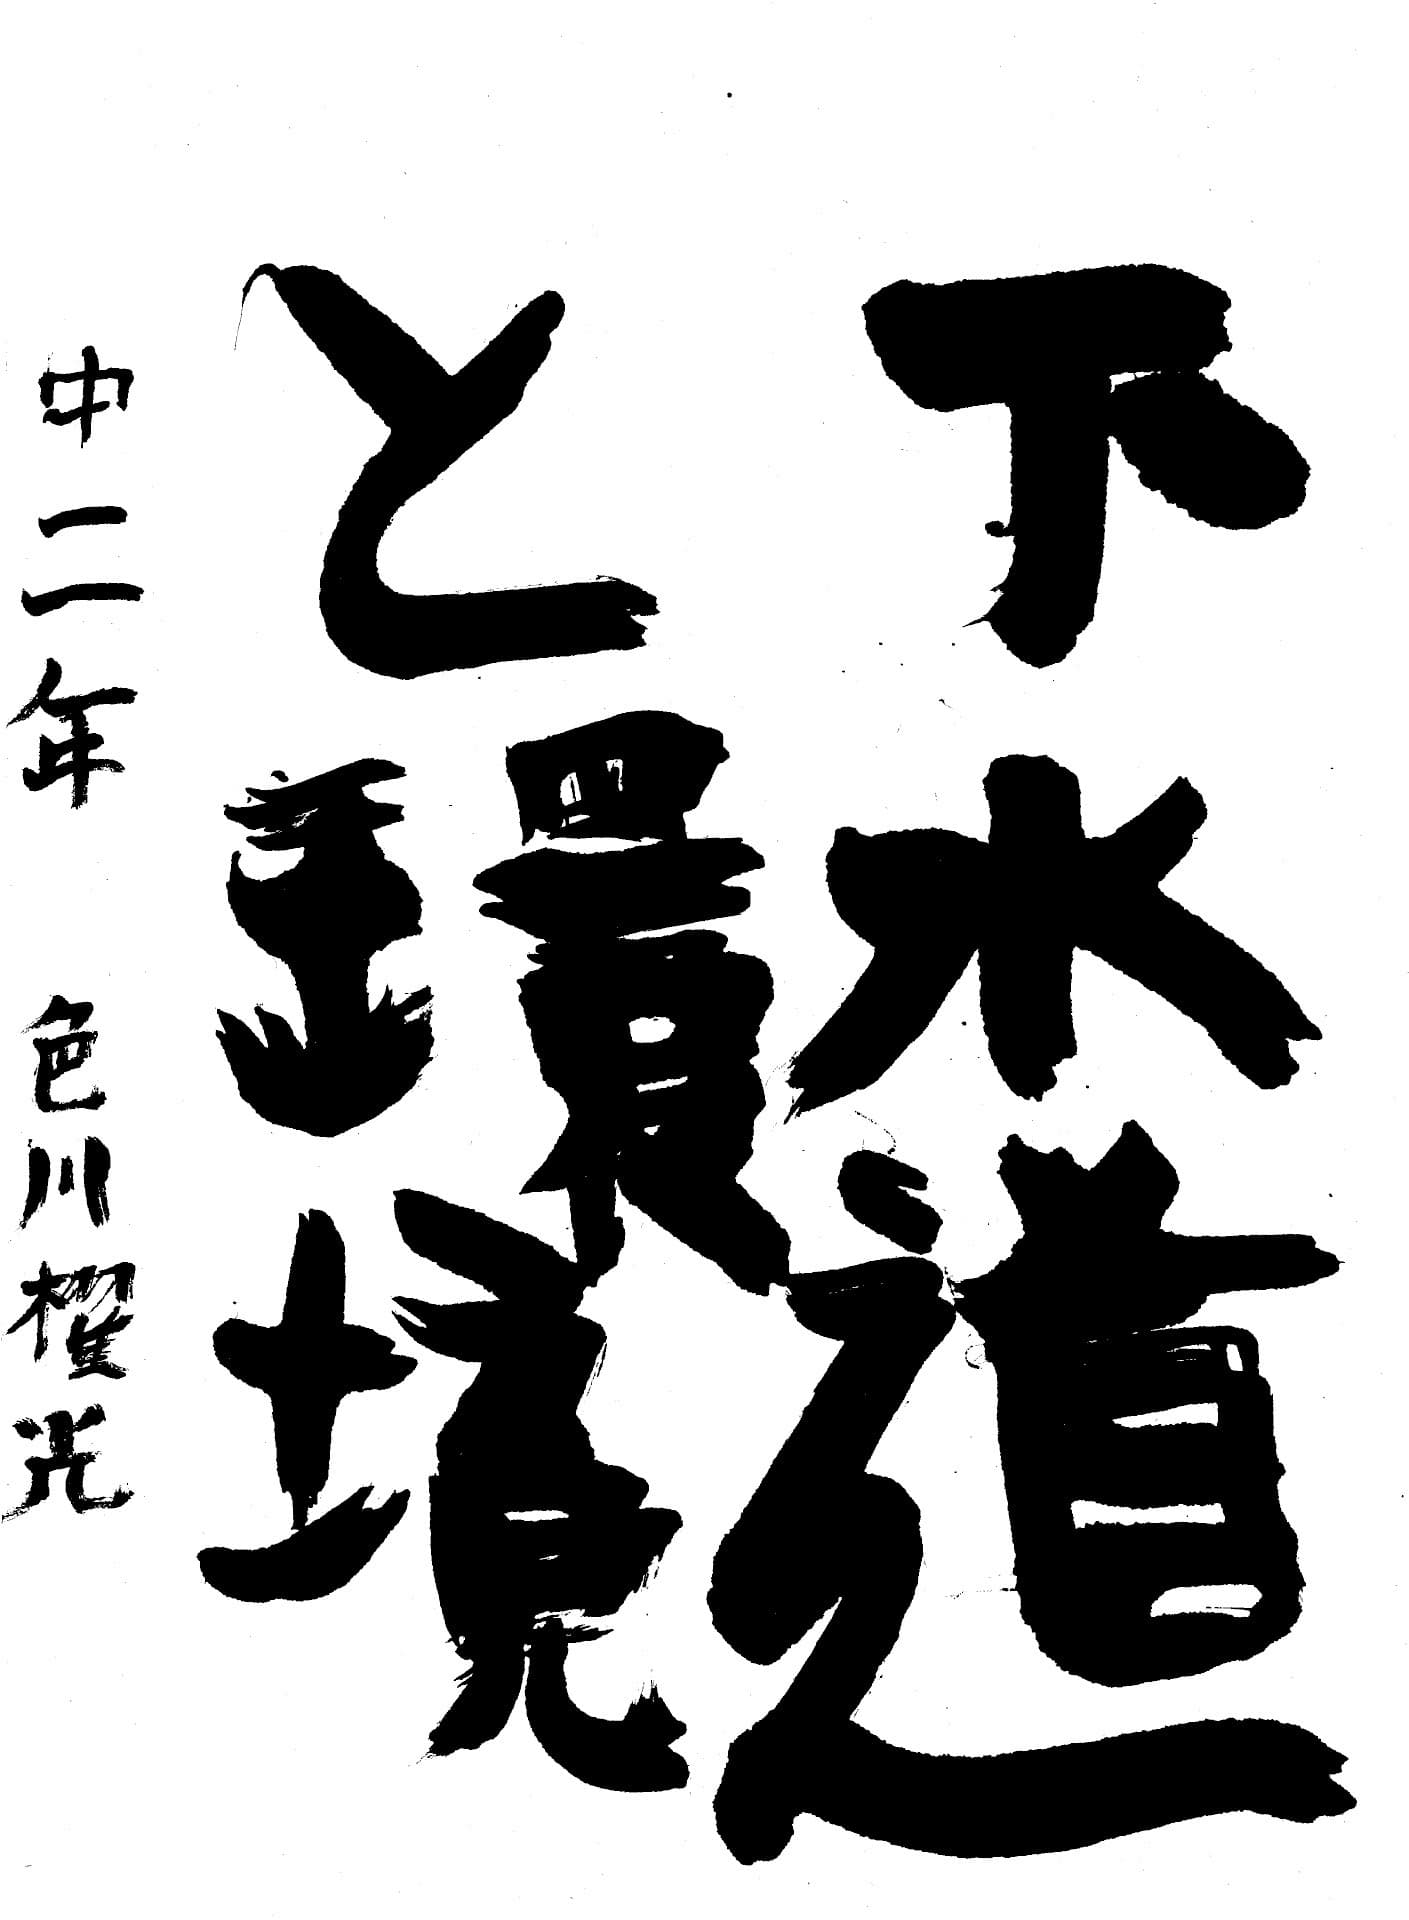 下水道
と環境
中二年 色川櫂光